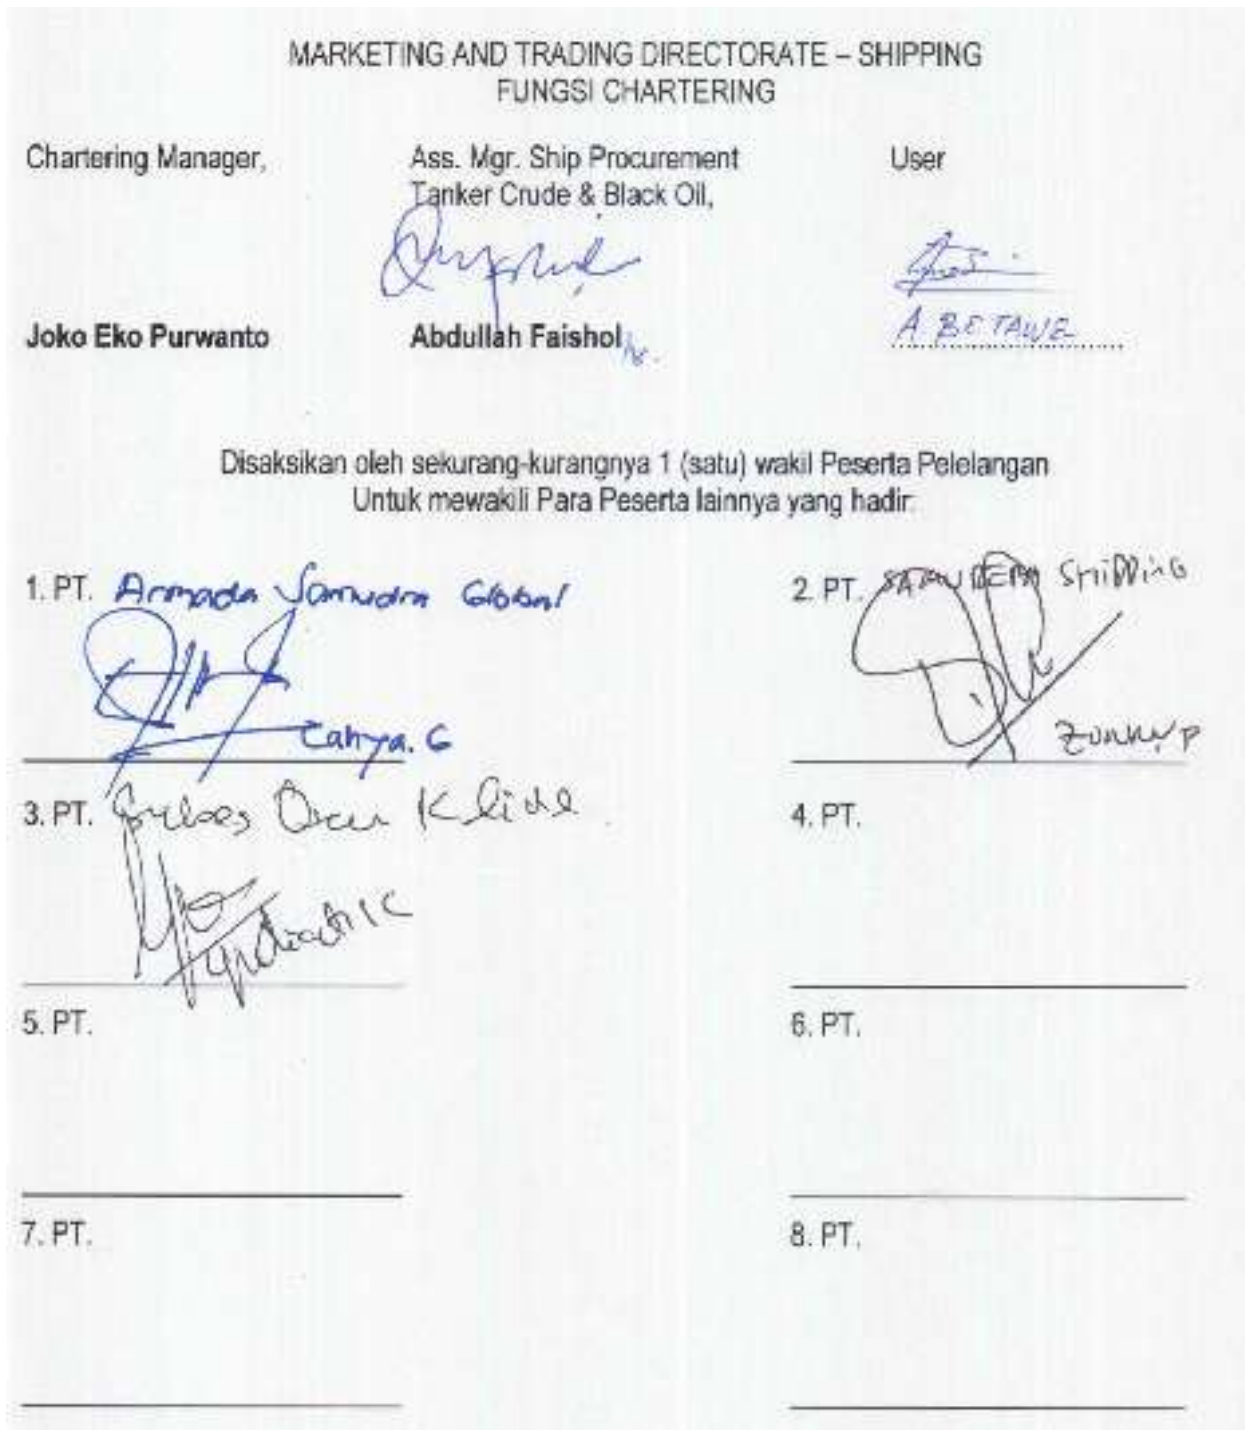 MARKETING AND TRADING DIRECTORATE – SHIPPING
FUNGSI CHARTERING
Chartering Manager,
Ass. Mgr. Ship Procurement
Tanker Crude & Black Oil,
User
Joko Eko Purwanto
Abdullah Faishol
A BETAWE
Disaksikan oleh sekurang-kurangnya 1 (satu) wakil Peserta Pelelangan
Untuk mewakili Para Peserta lainnya yang hadir.
1. PT. Armada Samudra Global
Cahya. G
2. PT. SAMUDERA SHIPPING
3. PT.
4. PT.
5. PT.
6. PT.
7. PT.
8. PT.